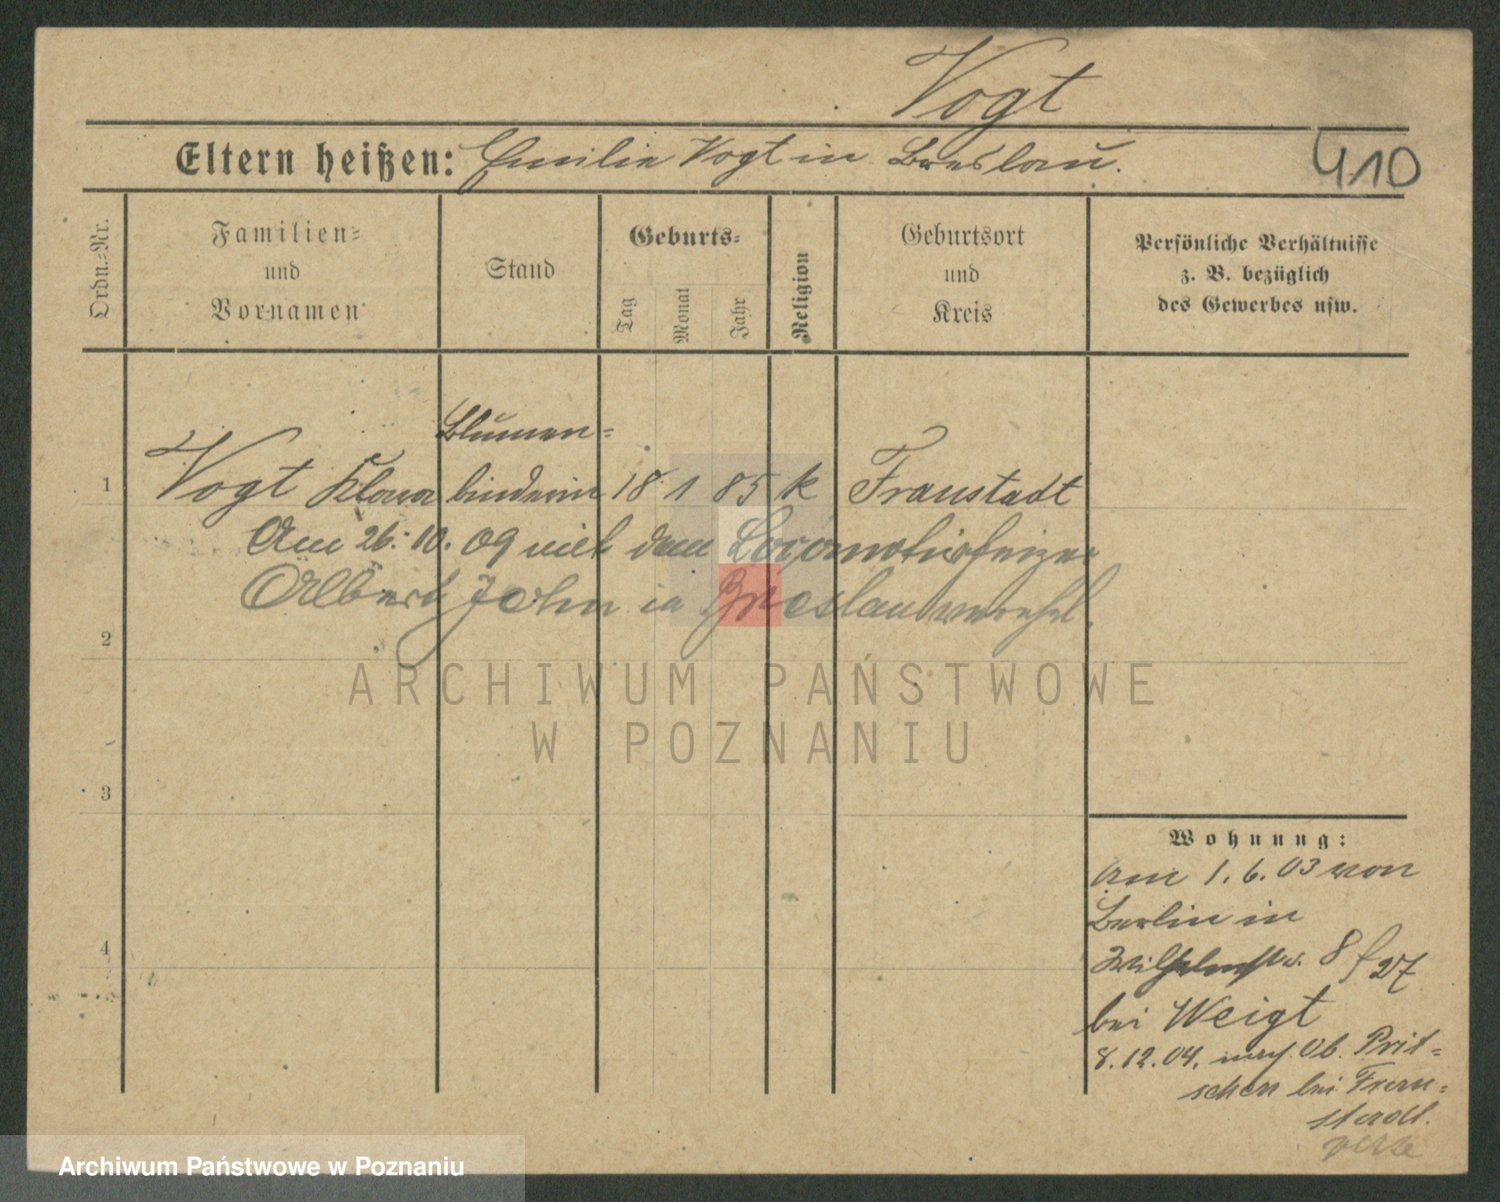 Vogt
Eltern heißen: Emilie Vogt in Breslau.
410
Ordn.-Nr.
Familien-
und
Vornamen
Stand
Geburts-
Tag
Monat
Jahr
Religion
Geburtsort
und
Kreis
Persönliche Verhältnisse
z. B. bezüglich
des Gewerbes usw.
Blumen-
1 Vogt Klara binderin 18 1 85 k Fraustadt
Am 26.10.09 mit dem Locomotivheizer
Albert John in Breslau verehel.
2
3
4
Wohnung:
Am 1.6.03 von
Berlin in
Wilhelmstr. 8 f 27
bei Weigt
8.12.04. nach Ob. Prit-
schen bei Frau-
stadt.
ARCHIWUM PAŃSTWOWE
W POZNANIU
Archiwum Państwowe w Poznaniu